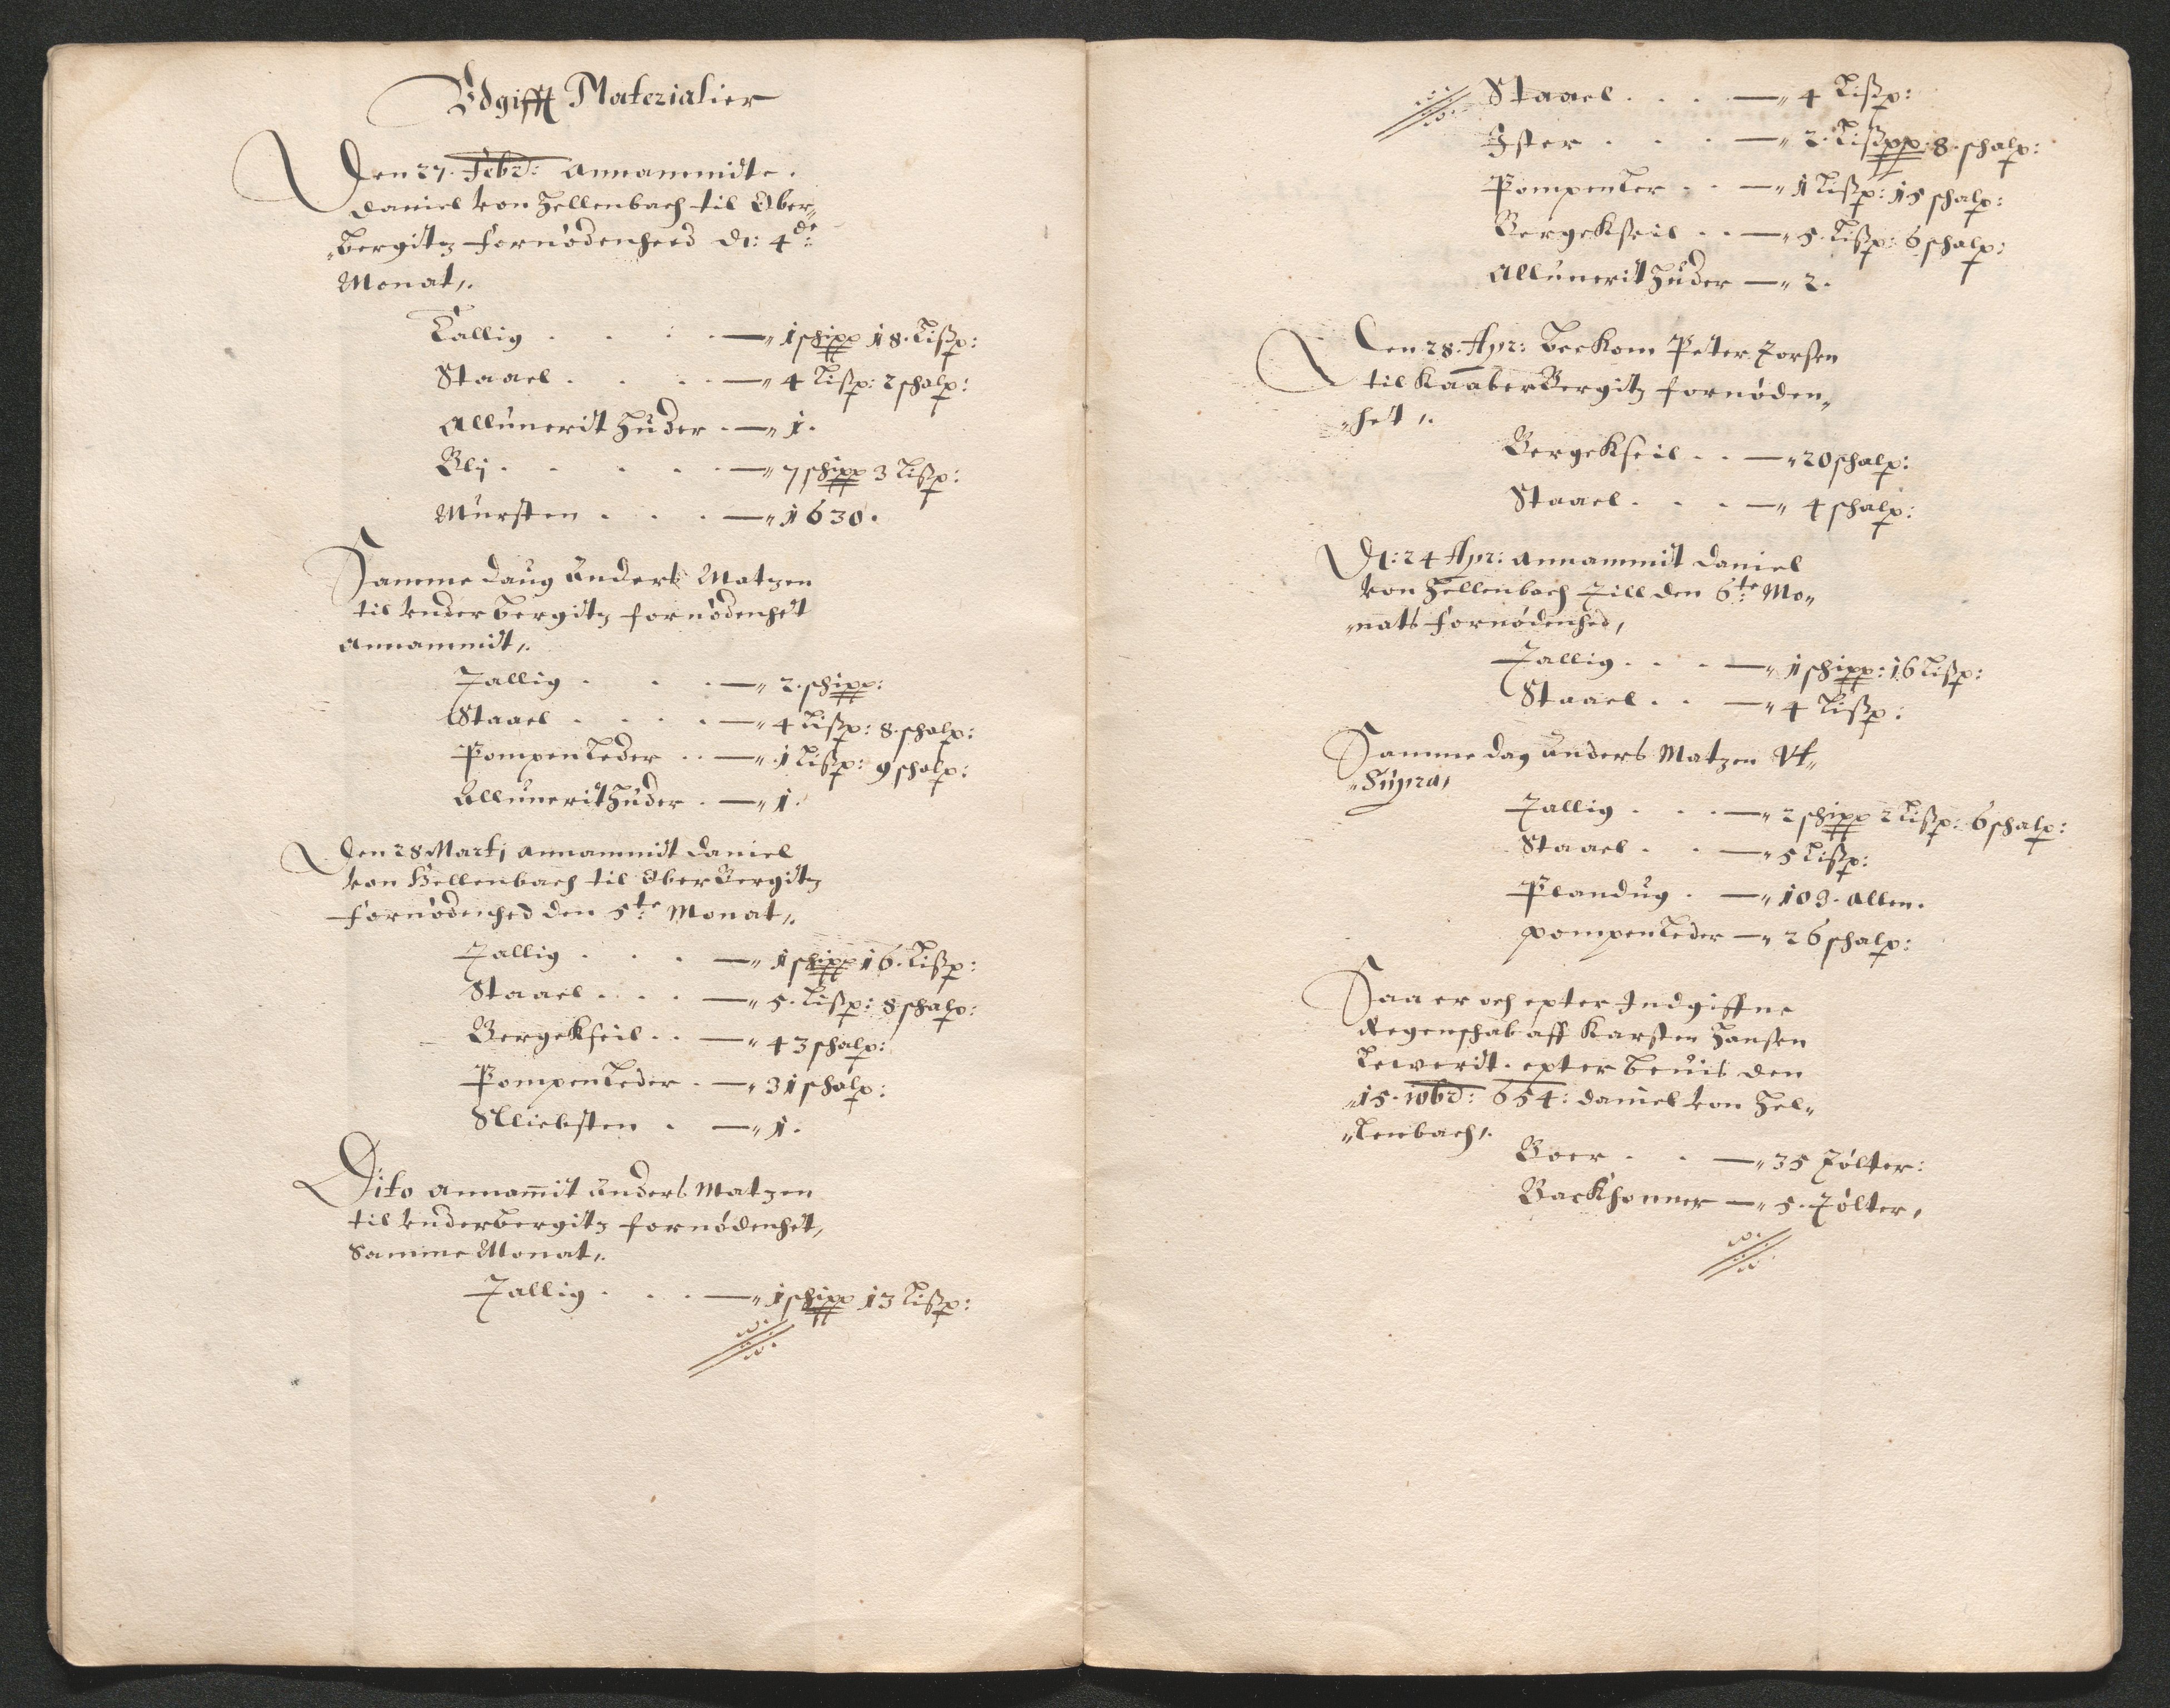 Udgifft Materialier
Den 27. Febr: annammidte
Daniel von Hellenbach til Ober„
„bergitz fornödenheed d: 4de:
Monat„.
Tallig . . . . —„ 1 schipp 18. Lißp:
Staael . . . . —„ 4 Lißp: 2 schalp:
Allunerit Huder . —„ 1.
Blij . . . . . —„ 7 schipp 3 Lißp:
Mursten . . . —„ 1630.
Samme Daug Anders Matzen
til Underbergitz fornödenhet
annammit„.
Tallig . . . —„ 2. schipp:
Staael . . . . —„ 4 Lißp: 8. schalp:
Pompenleder . . —„ 1 Lißp: 9 schalp:
Allunerit Huder . —„ 1.
Den 28 Martj annammidt Daniel
von Hellenbach til OberBergitz
fornödenhed den 5te: Monat„.
Tallig . . . —„ 1 schipp 16. Lißp:
Staael . . . . —„ 5. Lißp: 8 schalp:
Bergekseil . . —„ 43 schalp:
Pompenleder . —„ 31 schalp:
Sliebsten . —„ 1.
Dito annam̄it Anders Matzen
til Underbergitz fornödenhet,
Samme Monat„.
Tallig . . . —„ 1 schipp 13 Lißp:
Staael . . . . —„ 4 Lißp:
Ister . . . —„ 2. Lißpp: 8. schalp:
Pompenler . . —„ 1 Lißp: 15 schalp:
Bergekseil . . —„ 5. Lißp: 6 schalp:
Allunerit Huder —„ 2.
Den 28. Apr: beekom Peter Torsen
til KaaberBergitz fornöden„
„het„.
Bergekseil . . —„ 20 schalp:
Staael . . . —„ 4 schalp:
D: 24 Apr: annammit Daniel
von Hellenbach Till den 6te: Mo„
„nats fornödenhed,
Tallig . . . —„ 1 schipp: 16 Lißp:
Staael . . —„ 4 Lißp:
Samme dag Anders Matzen Vt„
„Supra,
Tallig . . . —„ 2 schipp 2 Lißp: 6 schalp:
Staael . . —„ 5 Lißp:
Plandug . —„ 103. Allen.
pompenleder —„ 26 schalp:
Saa er och epter Indgiffne
Regenschab aff Karsten Hansen
Leweridt. epter beuis den
15. 10br: 654: Daniel von Hel„
„lenbach„.
Boer . . —„ 35 Tölter:
Backhonner —„ 5. Tölter,